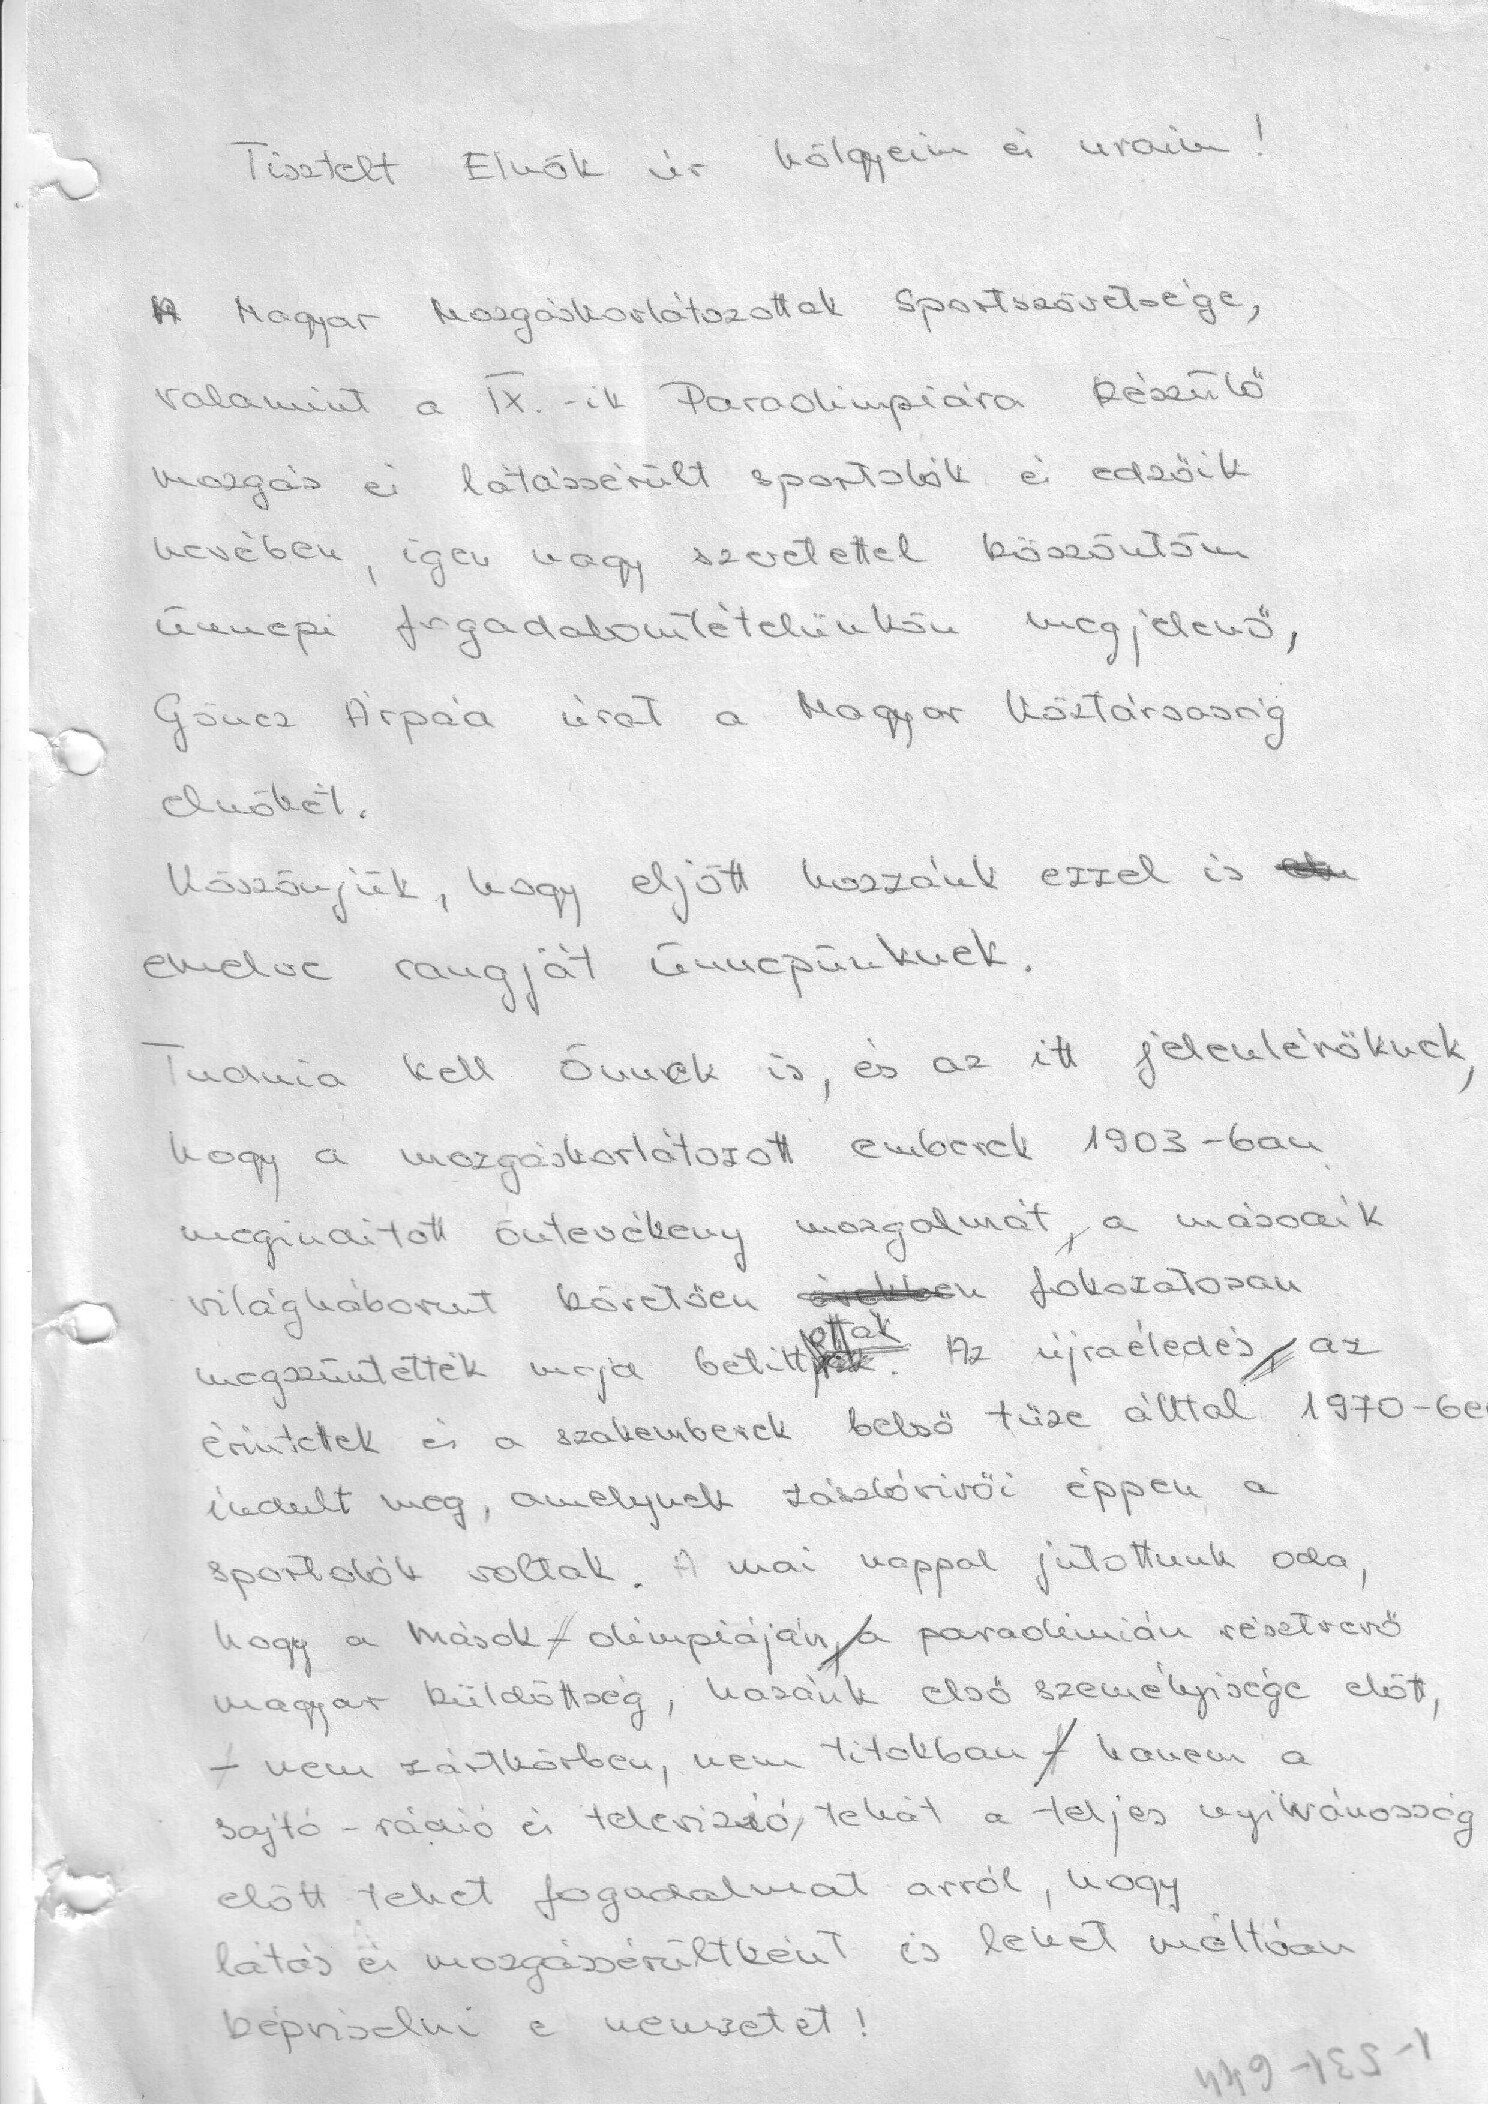 Tisztelt Elnök úr hölgyeim és uraim!
A Magyar Mozgáskorlátozottak Sportszövetsége,
valamint a IX.-ik Paraolimpiára készülő
mozgás és látássérült sportolók és edzőik
nevében, igen nagy szeretettel köszöntöm
ünnepi fogadalomtételünkön megjelenő,
Göncz Árpád úrat a Magyar Köztársaság
elnökét.
Köszönjük, hogy eljött hozzánk ezzel is
emelve rangját ünnepünknek.
Tudnia kell Önnek is, és az itt jelenlévőknek,
hogy a mozgáskorlátozott emberek 1903-ban
megindított öntevékeny mozgalmát, a második
világháborut követően fokozatosan
megszüntették majd betiltották. Az újraéledés, az
érintettek és a szakemberek belső tüze álltal 1970-ben
indult meg, amelynek zászlóvivői éppen a
sportolók voltak. A mai nappal jutottunk oda,
hogy a mások - olimpiáján, a paraolimián résztvevő
magyar küldöttség, hazánk első személyisége előtt,
- nem zártkörben, nem titokban - hanem a
sajtó - rádió és televizió, tehát a teljes nyilvánosság
előtt tehet fogadalmat arról, hogy
látás és mozgássérültként is lehet méltóan
képviselni e nemzetet!
1-531-644